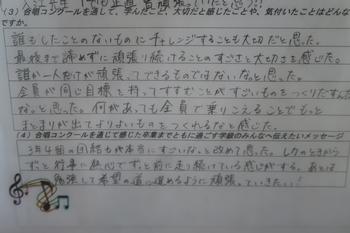 (3)合唱コンクールを通して、学んだこと、大切だと感じたことや、気付いたことはどんな
ですか。
誰もしたことのないものにチャレンジすることも大切だと思った。
最後まで諦めずに頑張り続けることのすごさと大切さを感じた。
誰か一人だけが頑張ってできるものではないな。と思った。
全員が同じ目標を持ってすすむことがすごいものをつくりだすんだ
な。と思った。何があっても全員で乗りこえることでもっと
まとまりが出てよりよいものをつくれるなと感じた。
(4)合唱コンクールを通じて感じた卒業までともに過ごす学級のみんなへ伝えたいメッセージ
3年4組の団結力が本当にすごいなと改めて思った。
ずっと行事に熱心でずっと前に走り続けている感じがする。あとは
勉強して希望の道へ進めるように頑張っていきたい!